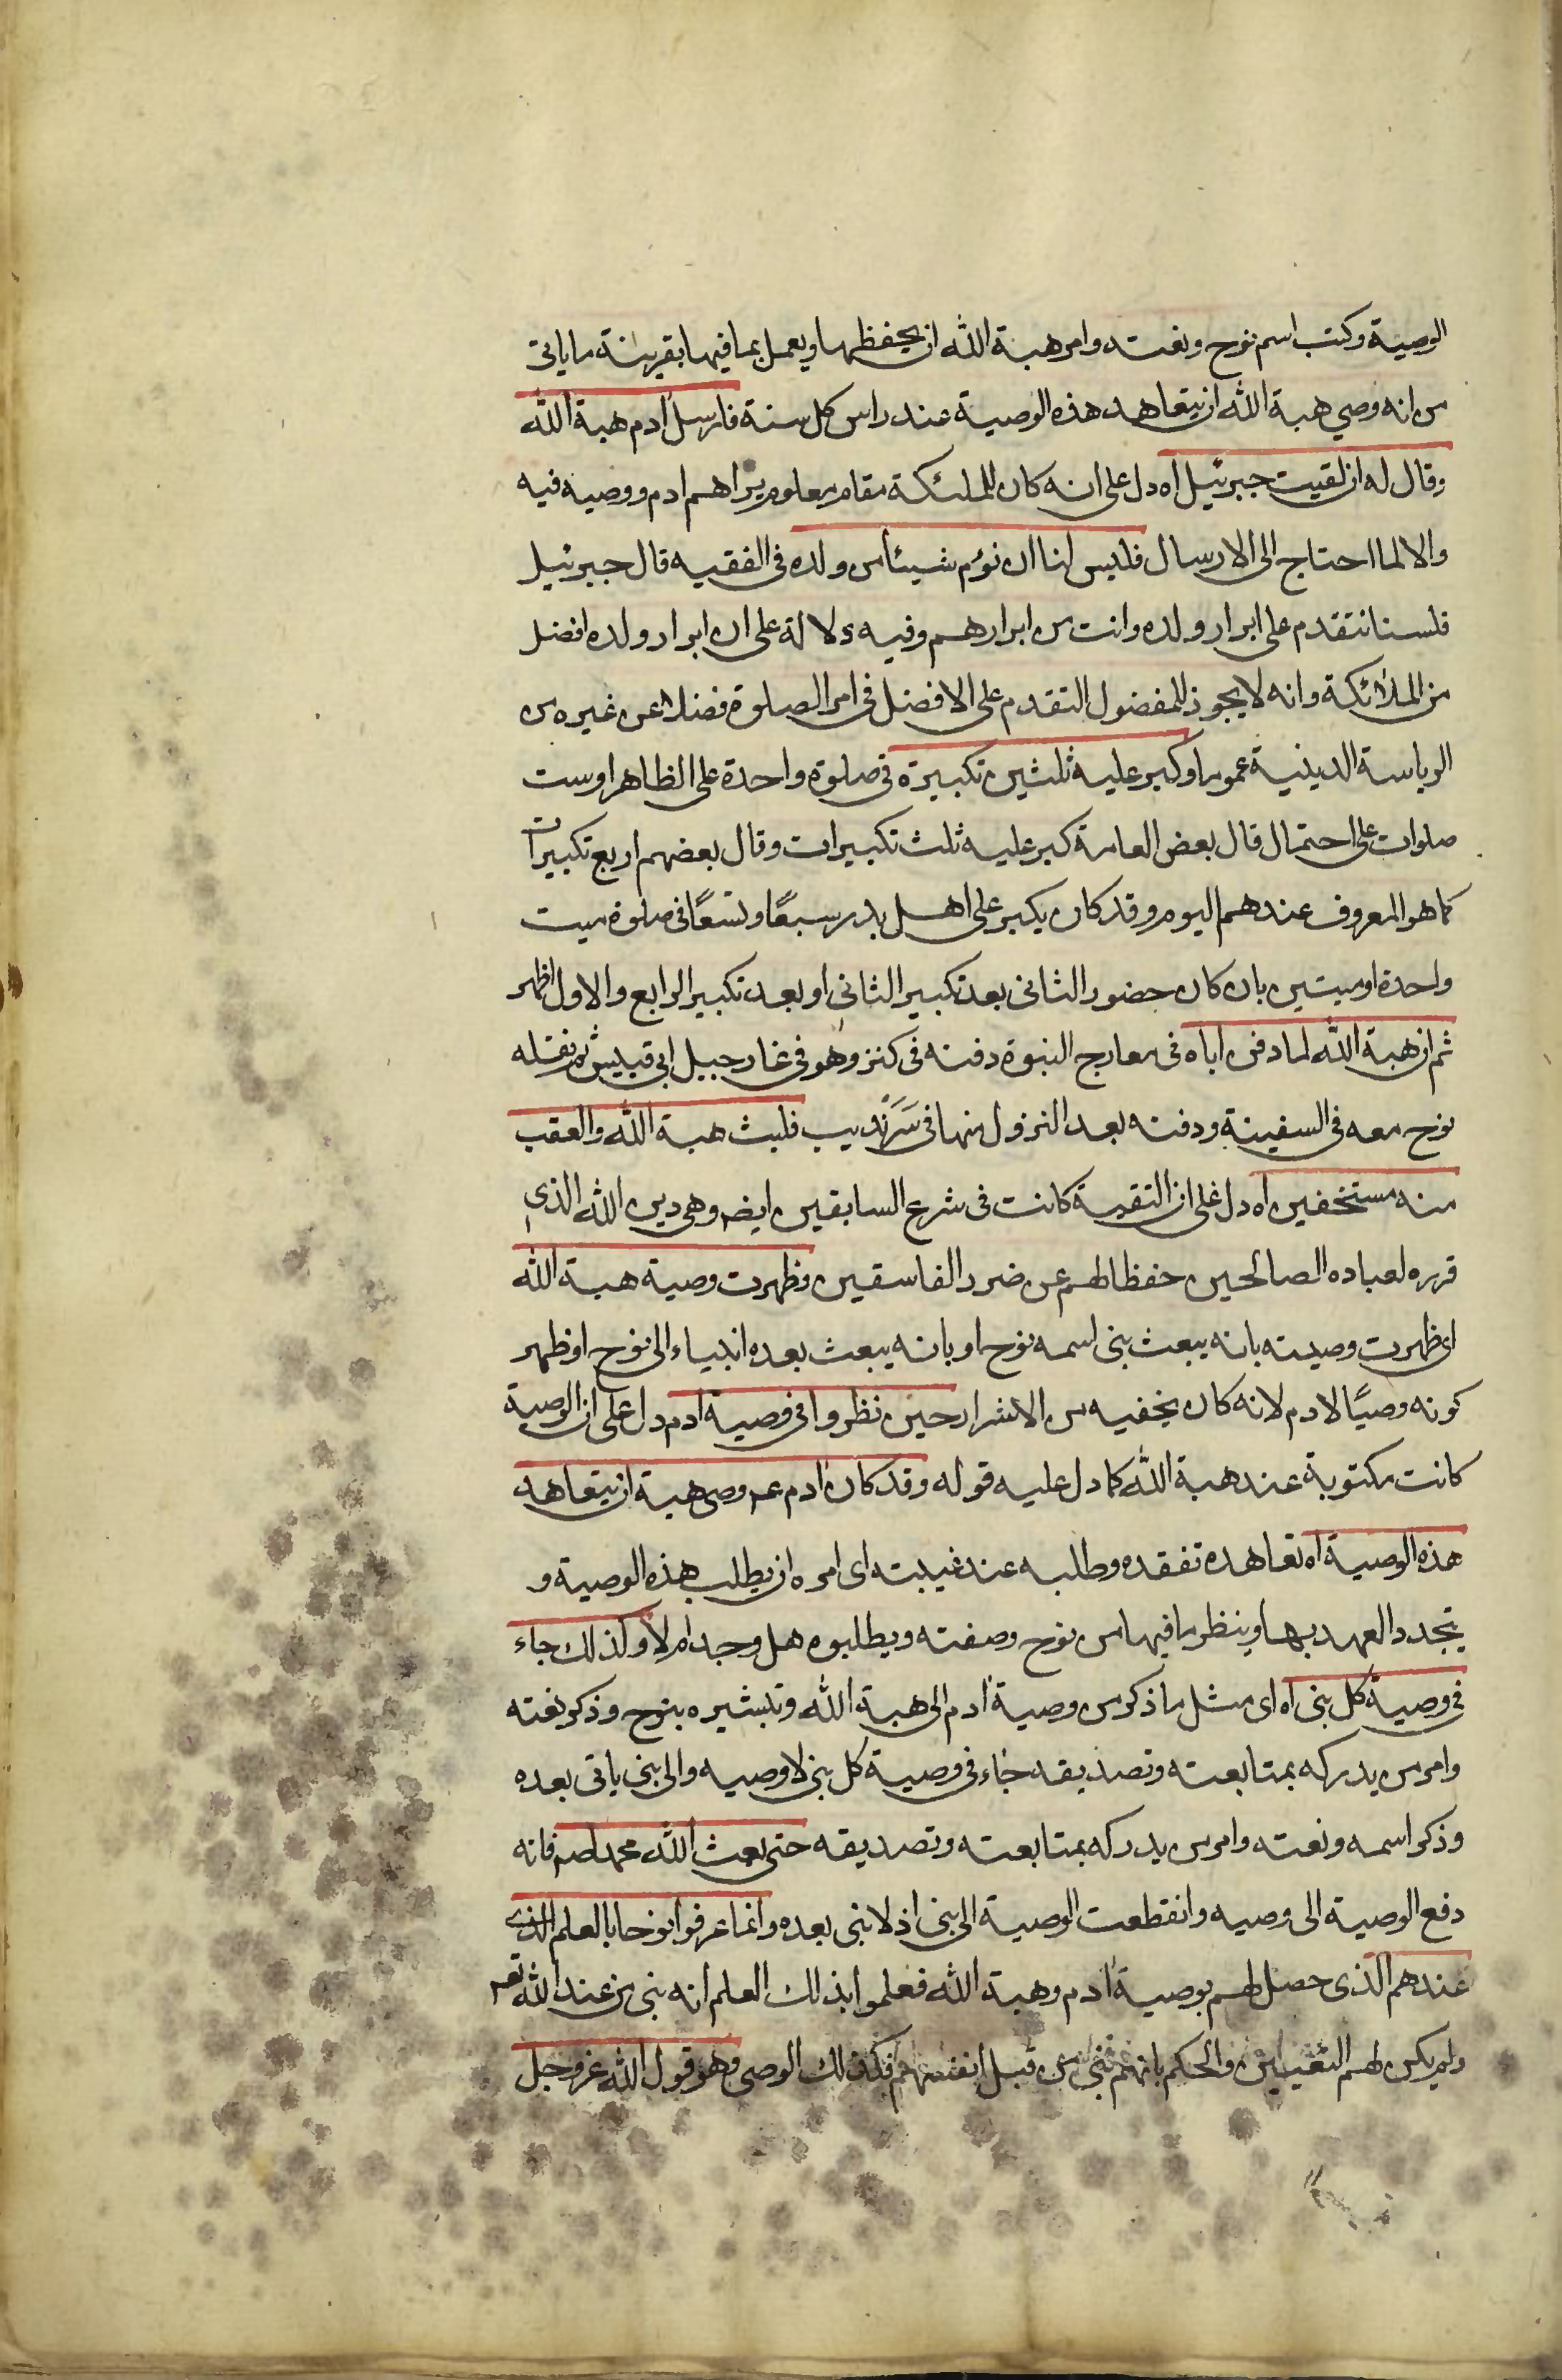 الوصية وكتب اسم نوح ونعته وامر هبة الله ان يحفظها ويعمل بما فيها بقرينة ما ياتى
من انه وصي هبة الله ان يتعاهد هذه الوصية عند راس كل سنة فارسل ادم هبة الله
وقال له ان لقيت جبرئيل اه دل على انه كان للملئكة مقام معلوم يراهم ادم ووصيه فيه
والا لما احتاج الى الارسال فليس لنا ان نؤم شيئا من ولده فى الفقيه قال جبرئيل
فلسنا نتقدم على ابرار ولده وانت من ابرارهم وفيه دلالة على ان ابرار ولده افضل
من الملائكة وانه لا يجوز للمفضول التقدم على الافضل فى امر الصلوة فضلا عن غيره من
الرياسة الدينية عموما وكبر عليه ثلثين تكبيرة فى صلوة واحدة على الظاهر او ست
صلوات على احتمال قال بعض العامة كبر عليه ثلث تكبيرات وقال بعضهم اربع تكبيرات
كما هو المعروف عندهم اليوم وقد كان يكبر على اهل بدر سبعًا وتسعًا فى صلوة ميت
واحدة او ميتين بان كان حضور الثانى بعد تكبير الثانى او بعد تكبير الرابع والاول اظهر
ثم ان هبة الله لما دفن اباه فى معارج النبوة دفنه فى كنز وهو فى غار جبيل ابى قبيس ثم نقله
نوح معه فى السفينة ودفنه بعد النزول منها فى سَرَنْديب فلبث هبة الله والعقب
منه مستخفين اه دل على ان التقية كانت فى شرع السابقين ايضم وهى دين الله الذى
قرره لعباده الصالحين حفظا لهم عن ضرر الفاسقين وظهرت وصية هبة الله
اى ظهرت وصيته بانه يبعث نبى اسمه نوح او بانه يبعث بعده انبياء الى نوح او ظهر
كونه وصيًا لادم لانه كان يخفيه من الاشرار حين نظروا فى وصية ادم دل على ان الوصية
كانت مكتوبة عند هبة الله كما دل عليه قوله وقد كان ادم عم وصى هبة ان يتعاهد
هذه الوصية اه تعاهده تفقده وطلبه عند غيبته اى امره ان يطلب هذه الوصية و
يتجدد العهد بها وينظر ما فيها من نوح وصفته ويطلبوه هل وجد ام لا وكذلك جاء
فى وصية كل نبى اه اى مثل ما ذكر من وصية ادم الى هبة الله وتبشيره بنوح وذكر نعته
وامر من يدركه بمتابعته وتصديقه جاء فى وصية كل نبى لاوصيه والى نبى ياتى بعده
وذكر اسمه ونعته وامر من يدركه بمتابعته وتصديقه حتى بعث الله محمدا صم فانه
دفع الوصية الى وصيه وانقطعت الوصية الى نبى اذ لا نبى بعده وانما عرفوا نوحا بالعلم الذى
عندهم الذى حصل لهم بوصية ادم وهبة الله فعلموا بذلك العلم انه نبى من عند الله تعم
ولم يكن لهم التعيين والحكم بانهم نبى من قبل انفسهم فكذلك الوصى وهو قول الله عز وجل